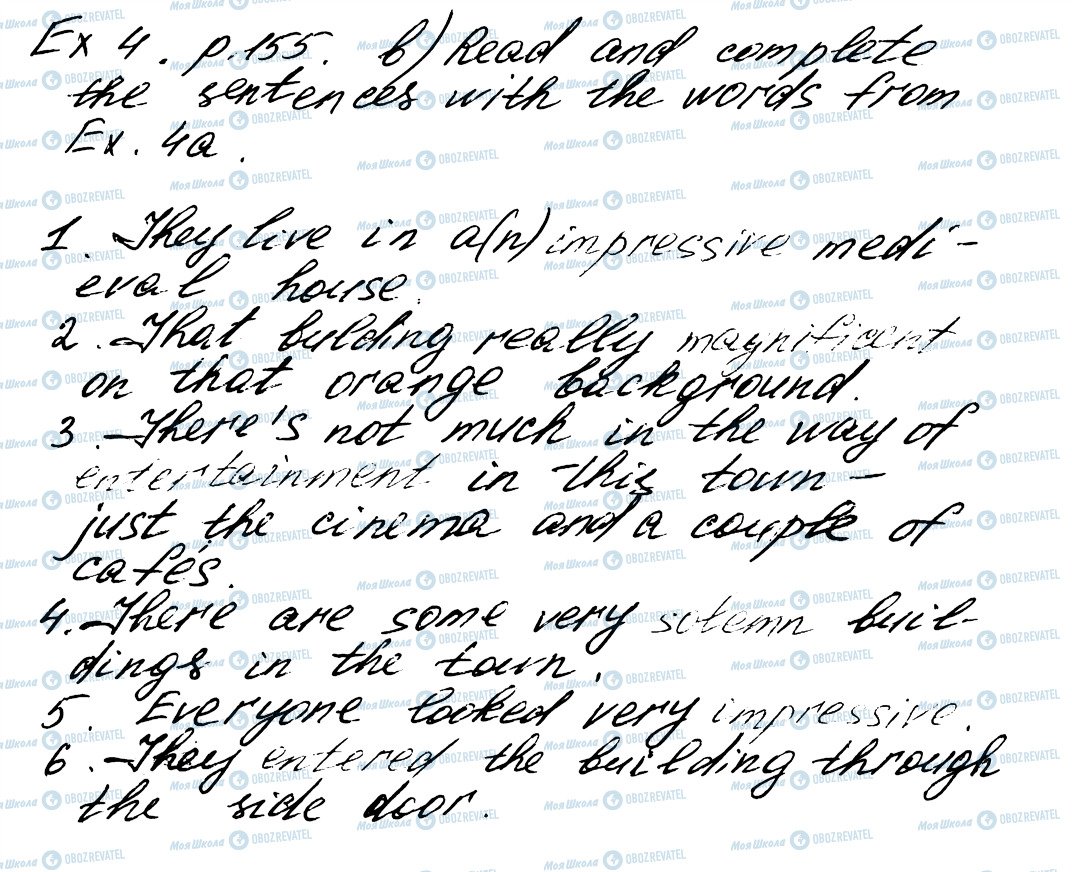 Ex 4. p.155. b) Read and complete
the sentences with the words from
Ex. 4a.
1. They live in a(n) impressive medi-
eval house.
2. That bulding really magnificent
on that orange background.
3. There's not much in the way of
entertainment in this town -
just the cinema and a couple of
cafés.
4. There are some very solemn buil-
dings in the town.
5. Everyone looked very impressive.
6. They entered the building through
the side door.